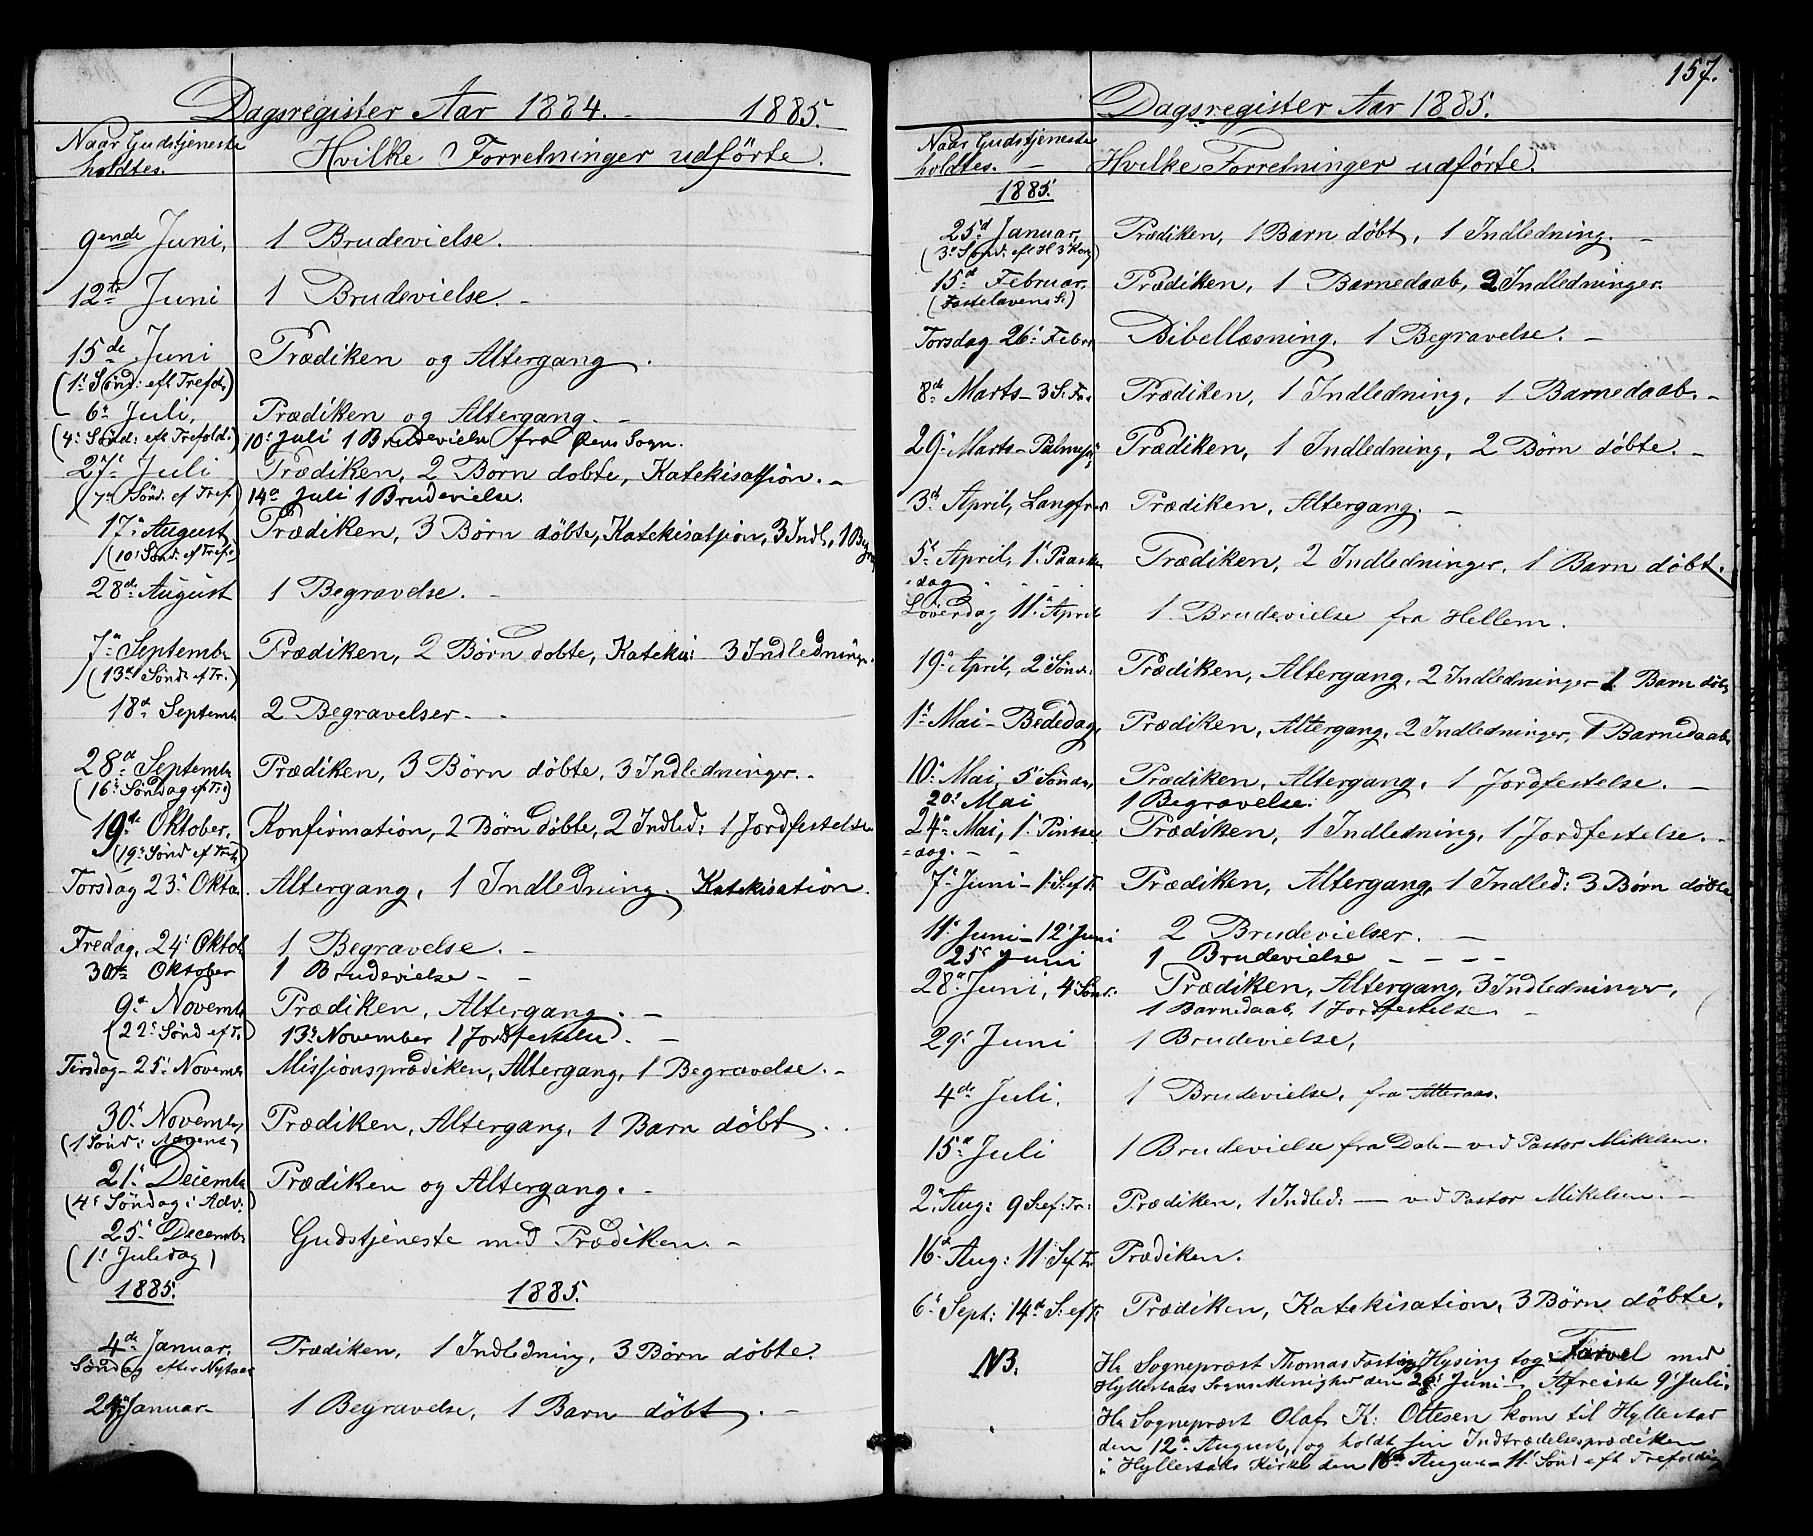 Dagsregister Aar 1884. - 1885.
Naar Gudstjeneste holdtes. Hvilke Forretninger udförte.
9ende Juni, 1 Brudevielse.
12te Juni 1 Brudevielse. -
15de Juni Prædiken og Altergang.
(1: Sönd: eft Trefold:)
6: Juli, Prædiken og Altergang. -
(4: Sönd: eft Trefold:) 10: Juli 1 Brudevielse fra Sogn.
27: Juli Prædiken, 2 Börn döbte, Katekisassjon. -
(7: Sönd: ef Tref:) 14: Juli 1 Brudevielse.
17: August, Prædiken, 3 Börn döbte, Katekisatsjon, 3 Indl., 1 Begr
(10: Sönd: ef Tref:)
28de August 1 Begravelse. -
7: Septembr Prædiken, 2 Börn döbte, Kateki: 3 Indledninger.
(13: Sönd: ef Tr:)
18: Septemb 2 Begravelser. -
28: Septembr Prædiken, 3 Börn döbte, 3 Indledninger. -
(16: Söndag ef Tr:)
19de Oktober, Konfirmation, 2 Börn döbte, 2 Indled: 1 Jordfestelse
(19: Sönd ef Tref:)
Torsdag 23: Okto. Altergang, 1 Indledning. Katekisation.
Fredag, 24: Oktob 1 Begravelse. -
30te Oktober 1 Brudevielse - -
9: Novemb Prædiken, Altergang. -
(22: Sönd ef Tr:) 13: November 1 Jordfestelse. -
Tirsdag - 25: Novembr Missjonsprædiken, Altergang, 1 Begravelse. -
30: Novembr, Prædiken, Altergang, 1 Barn döbt. .
(1 Sönd:
21: Decembr Prædiken og Altergang. -
(4: Söndag i Adv:)
25: Decembr Gudstjeneste med Prædiken. -
(1: Juledag)
1885. 1885.
4de Januar, Prædiken, 1 Indledning, 3 Börn döbte.
Söndag efter Nytaar
Januar - 1 Begravelse, 1 Barn döbt. -
157.
Dagsregister Aar 1885.
Naar Gudstjeneste holdtes. - Hvilke Forretninger udförte.
1885.
25: Januar, Prædiken, 1 Barn döbt, 1 Indledning. -
(3: Sönd: eft H 3 Kong)
15: Februar, Prædiken, 1 Barnedaab, 2 Indledninger.
(Fastelavens S:)
Torsdag 26: Febr. Bibellæsning, 1 Begravelse. -
8de Marts - 3 S: Fa. Prædiken, 1 Indledning, 1 Barnedaab. -
29: Marts - Palmesö Prædiken, 1 Indledning, 2 Börn döbte. -
3: April, Langfre Prædiken, Altergang. -
5: April, 1: Paaske Prædiken, 2 Indledninger, 1 Barn döbt.
- dag
Löverdag 11: April 1 Brudevielse fra Hellem.
19: April, 2 Sönd: Prædiken, Altergang, 2 Indledninger 1 Barn döbt
1: Mai - Bededag, Prædiken, Altergang, 2 Indledninger, 1 Barnedaab
10: Mai, 5 Söndag, Prædiken, Altergang, 1 Jordfestelse. -
20: Mai 1 Begravelse.
24: Mai, 1: Pinse Prædiken, 1 Indledning, 1 Jordfestelse. -
= dag. - -
7: Juni - 1: S. ef Tr Prædiken, Altergang, 1 Indled: 3 Börn döbte
11: Juni - 12: Juni 2 Brudevielser. -
25: Juni 1 Brudevielse - - - -
28: Juni, 4 Sönd. Prædiken, Altergang, 3 Indledninger,
1 Barnedaab, 1 Jordfestelse -
29: Juni 1 Brudevielse,
4de Juli. 1 Brudevielse, fra
15: Juli 1 Brudevielse fra Dale - ved Pastor Mikelsen.
2: Aug: 9 S. ef: Tr: Prædiken, 1 Indled: - ved Pastor Mikelsen. -
16: Aug: 11: S. ef Tr. Prædiken.
6: Sept: 14: S: ef Tr: Prædiken, Katekisation, 3 Börn döbte.
NB. Hr Sognepræst Thomas Fasting Hysing tog Farvel med
Hyllestads Sogns Menighed den 28: Juni - Afreiste 9: Juli.
Hr Sognepræst Olaf K: Ottesen kom til Hyllestad
den 12: August, og holdt sin Indtrædelsesprædiken
i Hyllestads Kirke den 16: August - 11: Sönd eft Trefoldig